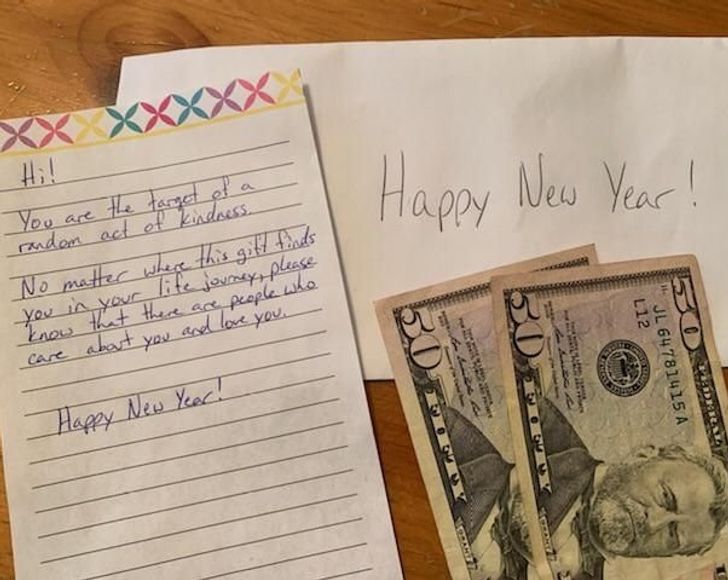 Hi!
You are the target of a
random act of kindness.
No matter where this gift finds
you in your life journey, please
know that there are people who
care about you and love you.
Happy New Year!
Happy New Year!
50
50
JL 64781415 A
L12
50